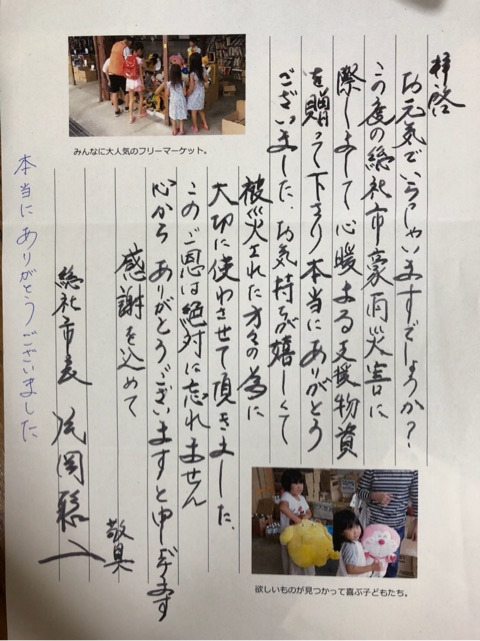 拝啓
お元気でいらっしゃいますでしょうか?
この度の総社市豪雨災害に
際しまして心暖まる支援物資
を贈って下さり本当にありがとう
ございました、お気持ちが嬉しくて
被災された方々の為に
大切に使わさせて頂きました、
このご恩は絶対に忘れません
心からありがとうございますと申し上げます
感謝を込めて
敬具
総社市長 片岡聡一
本当にありがとうございました
みんなに大人気のフリーマーケット。
欲しいものが見つかって喜ぶ子どもたち。